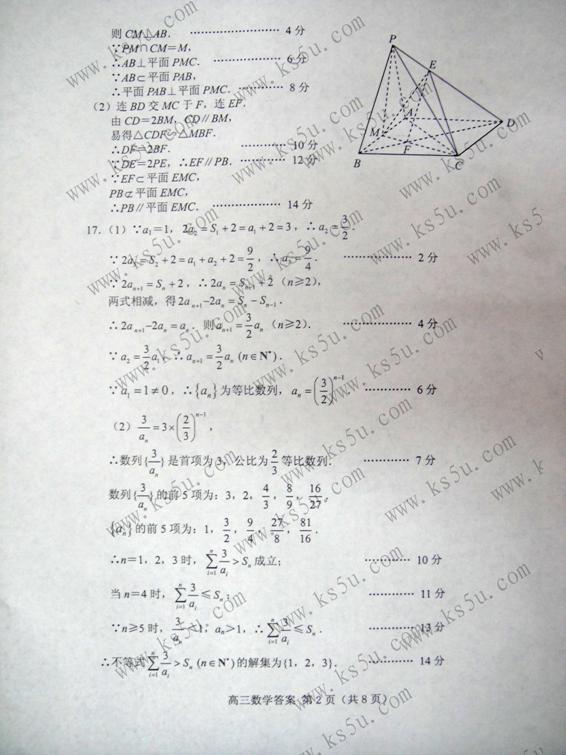 则 CM⊥AB. ………………… 4 分
∵PM∩CM=M,
∴AB⊥平面 PMC. ……………… 6 分
∵AB⊂平面 PAB,
∴平面 PAB⊥平面 PMC. ………… 8 分
(2) 连 BD 交 MC 于 F, 连 EF.
由 CD=2BM, CD∥BM,
易得△CDF∽△MBF.
∴DF=2BF. ………… 10 分
∵DE=2PE, ∴EF∥PB. ………… 12 分
∵EF⊂平面 EMC,
PB⊄平面 EMC,
∴PB∥平面 EMC. ………… 14 分
P
E
M
A
D
F
B
C
17. (1) ∵a₁=1, 2a₂=S₁+2=a₁+2=3, ∴a₂=3/2.
∵2a₃=S₂+2=a₁+a₂+2=9/2, ∴a₃=9/4. ………… 2 分
∵2aₙ₊₁=Sₙ+2, ∴2aₙ=Sₙ₋₁+2 (n≥2),
两式相减, 得2aₙ₊₁−2aₙ=Sₙ−Sₙ₋₁.
∴2aₙ₊₁−2aₙ=aₙ. 则aₙ₊₁=3/2 aₙ (n≥2). ………… 4 分
∵a₂=3/2 a₁, ∴aₙ₊₁=3/2 aₙ (n∈N*).
∵a₁=1≠0, ∴{aₙ}为等比数列, aₙ=(3/2)ⁿ⁻¹. ………… 6 分
(2) 3/aₙ=3×(2/3)ⁿ⁻¹,
∴数列{3/aₙ}是首项为 3, 公比为2/3等比数列. ………… 7 分
数列{3/aₙ}的前 5 项为: 3, 2, 4/3, 8/9, 16/27.
{aₙ}的前 5 项为: 1, 3/2, 9/4, 27/8, 81/16.
∴n=1, 2, 3 时, ∑ⁿᵢ₌₁ 3/aᵢ>Sₙ成立; ………… 10 分
当 n=4 时, ∑ⁿᵢ₌₁ 3/aᵢ≤Sₙ; ………… 11 分
∵n≥5 时, 3/aₙ<1, aₙ>1, ∴∑ⁿᵢ₌₁ 3/aᵢ≤Sₙ. ………… 13 分
∴不等式∑ⁿᵢ₌₁ 3/aᵢ>Sₙ (n∈N*)的解集为{1, 2, 3}. ………… 14 分
高三数学答案 第 2 页 (共 8 页)
www.ks5u.com